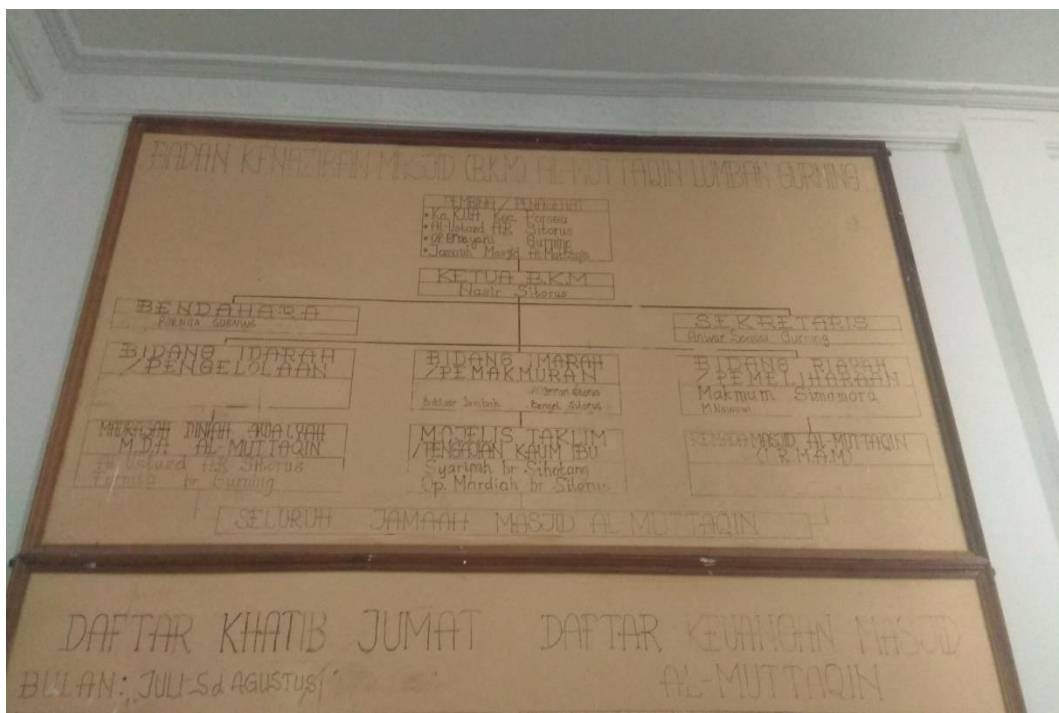 BADAN KENAZIRAN MASJID (BKM) AL-MUTTAQIN LUMBAN GURNING
PEMBINA / PENASEHAT
• Ka. KUA Kec. Porsea
• Al-Ustazd A.R. Sitorus
• Gurning
• Jamaah Masjid Al-Muttaqin
KETUA B.K.M
Nasir Sitorus
BENDAHARA
GURNING
SEKRETARIS
Anwar Gurning
BIDANG IDARAH
/PENGELOLAAN
BIDANG IMARAH
/PEMAKMURAN
Sitorus
Bengel Sitorus
BIDANG RIAYAH
/PEMELIHARAAN
Makmum Simamora
M.Nawawi
MADRASAH DINIAH AWALIYAH
M.D.A. AL-MUTTAQIN
Al-Ustazd A.R. Sitorus
br Gurning
MAJELIS TAKLIM
/PENGAJIAN KAUM IBU
Syaripah br Sihotang
Op. Mardiah br Sitorus
REMAJA MASJID AL-MUTTAQIN
(I.R.M.A.M)
SELURUH JAMAAH MASJID AL MUTTAQIN
DAFTAR KHATIB JUMAT
BULAN: JULI-Sd AGUSTUS/
DAFTAR KEUANGAN MASJID
AL-MUTTAQIN